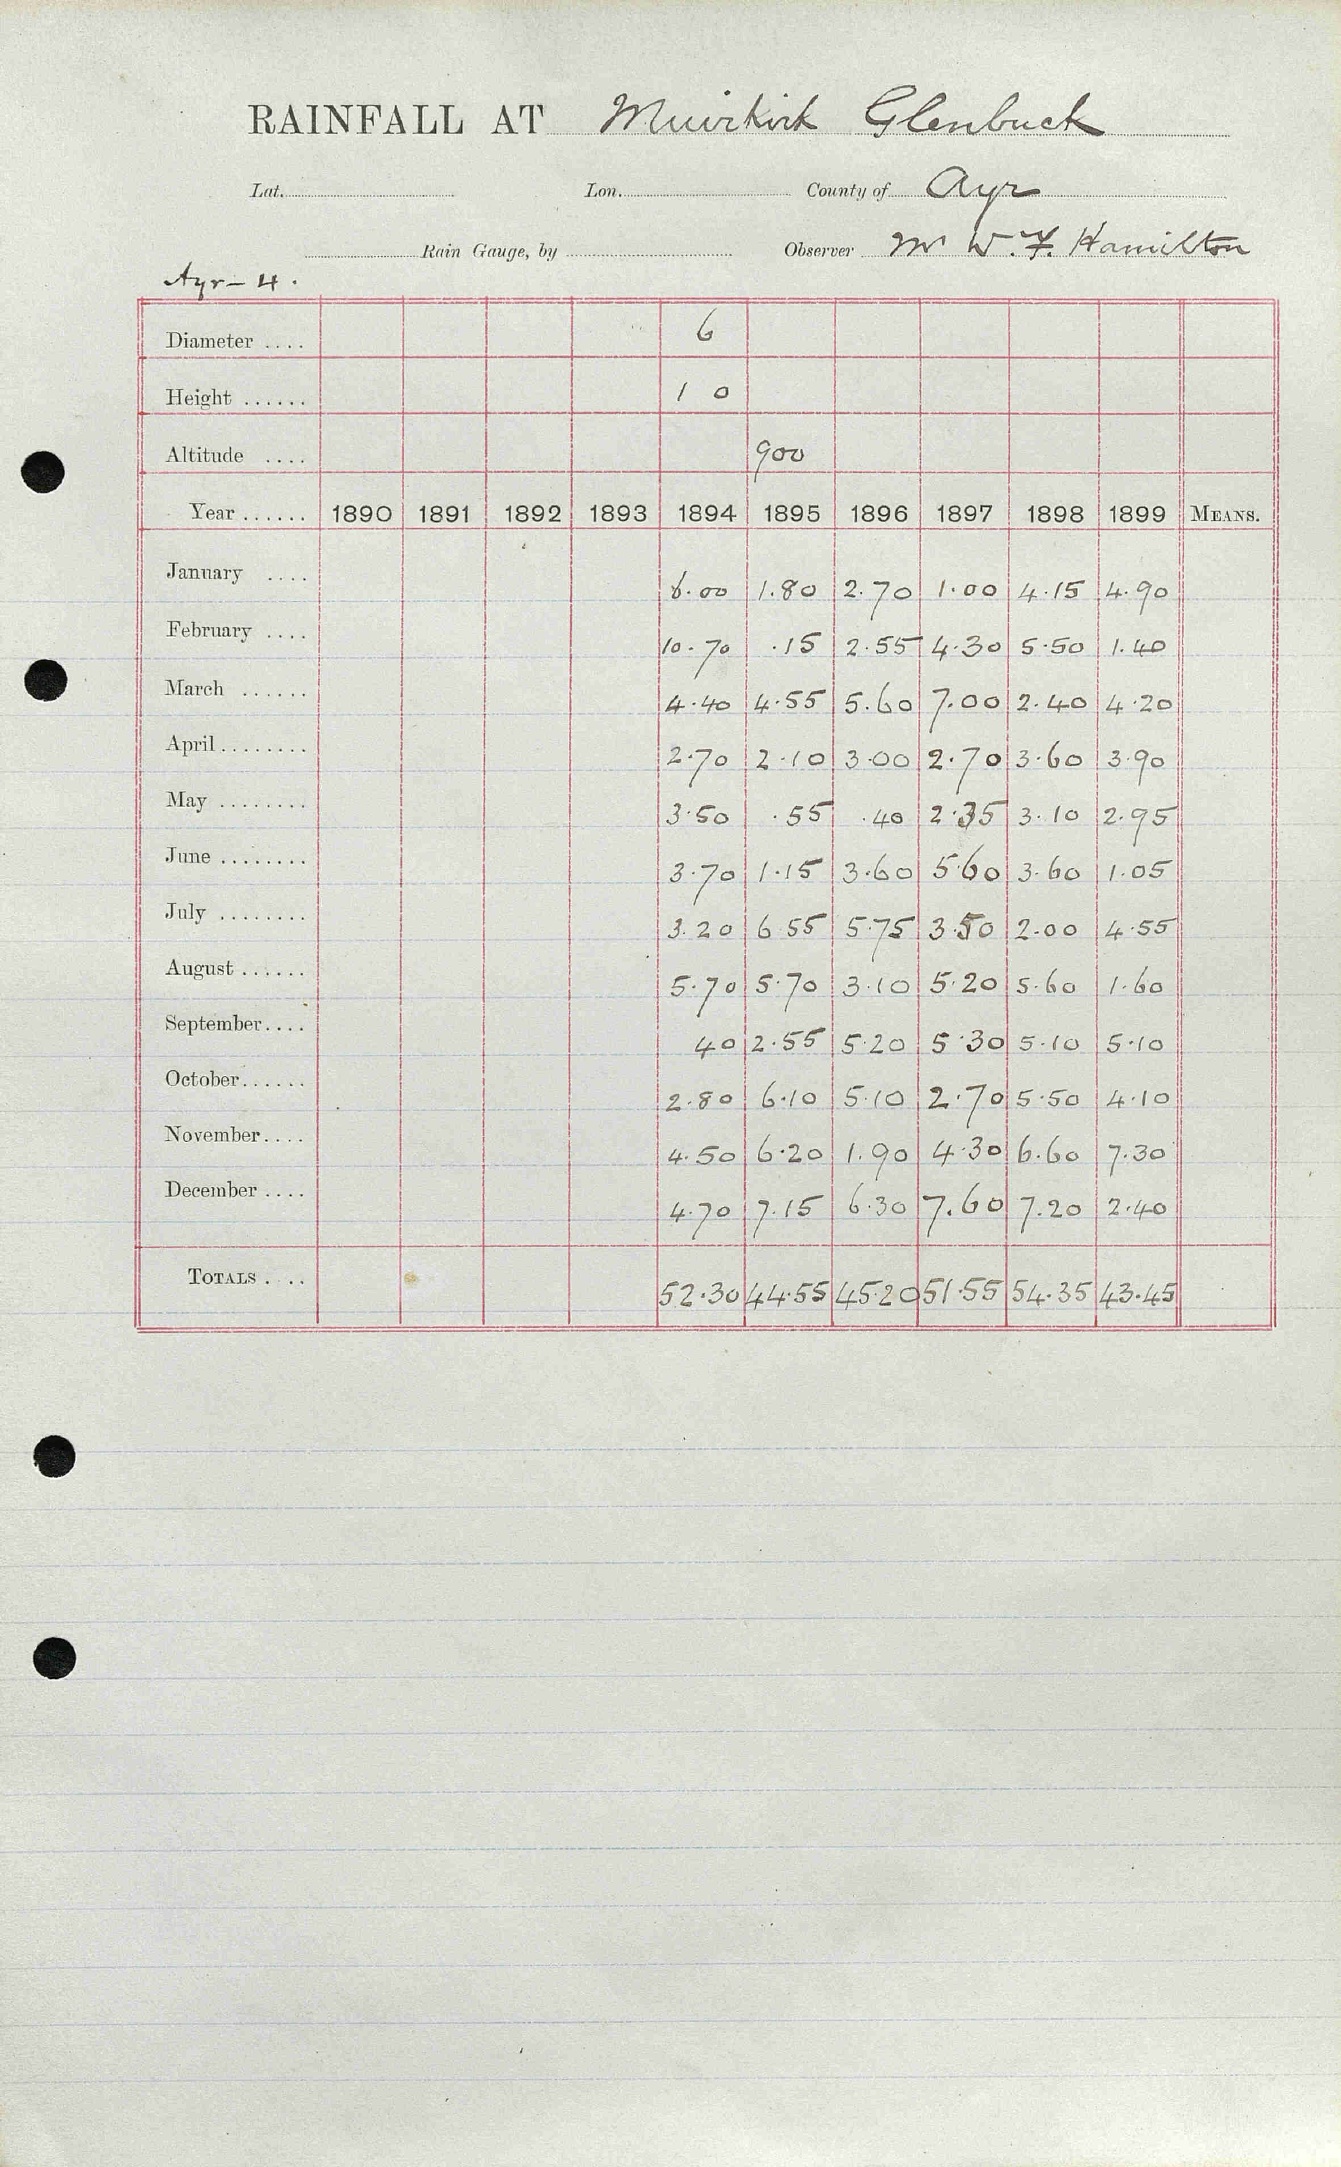 RAINFALL AT Muirkirk Glenbuck
Lat. Lon. County of Ayr
Rain Gauge, by Observer Mr W. F. Hamilton
Ayr-4.
Diameter .... 6
Height ...... 1 0
Altitude .... 900
Year ...... 1890 1891 1892 1893 1894 1895 1896 1897 1898 1899 MEANS.
January .... 6.00 1.80 2.70 1.00 4.15 4.90
February .... 10.70 .15 2.55 4.30 5.50 1.40
March ...... 4.40 4.55 5.60 7.00 2.40 4.20
April ........ 2.70 2.10 3.00 2.70 3.60 3.90
May ........ 3.50 .55 .40 2.35 3.10 2.95
June ........ 3.70 1.15 3.60 5.60 3.60 1.05
July ........ 3.20 6.55 5.75 3.50 2.00 4.55
August ...... 5.70 5.70 3.10 5.20 5.60 1.60
September.... 40 2.55 5.20 5.30 5.10 5.10
October...... 2.80 6.10 5.10 2.70 5.50 4.10
November.... 4.50 6.20 1.90 4.30 6.60 7.30
December .... 4.70 7.15 6.30 7.60 7.20 2.40
TOTALS .... 52.30 44.55 45.20 51.55 54.35 43.45